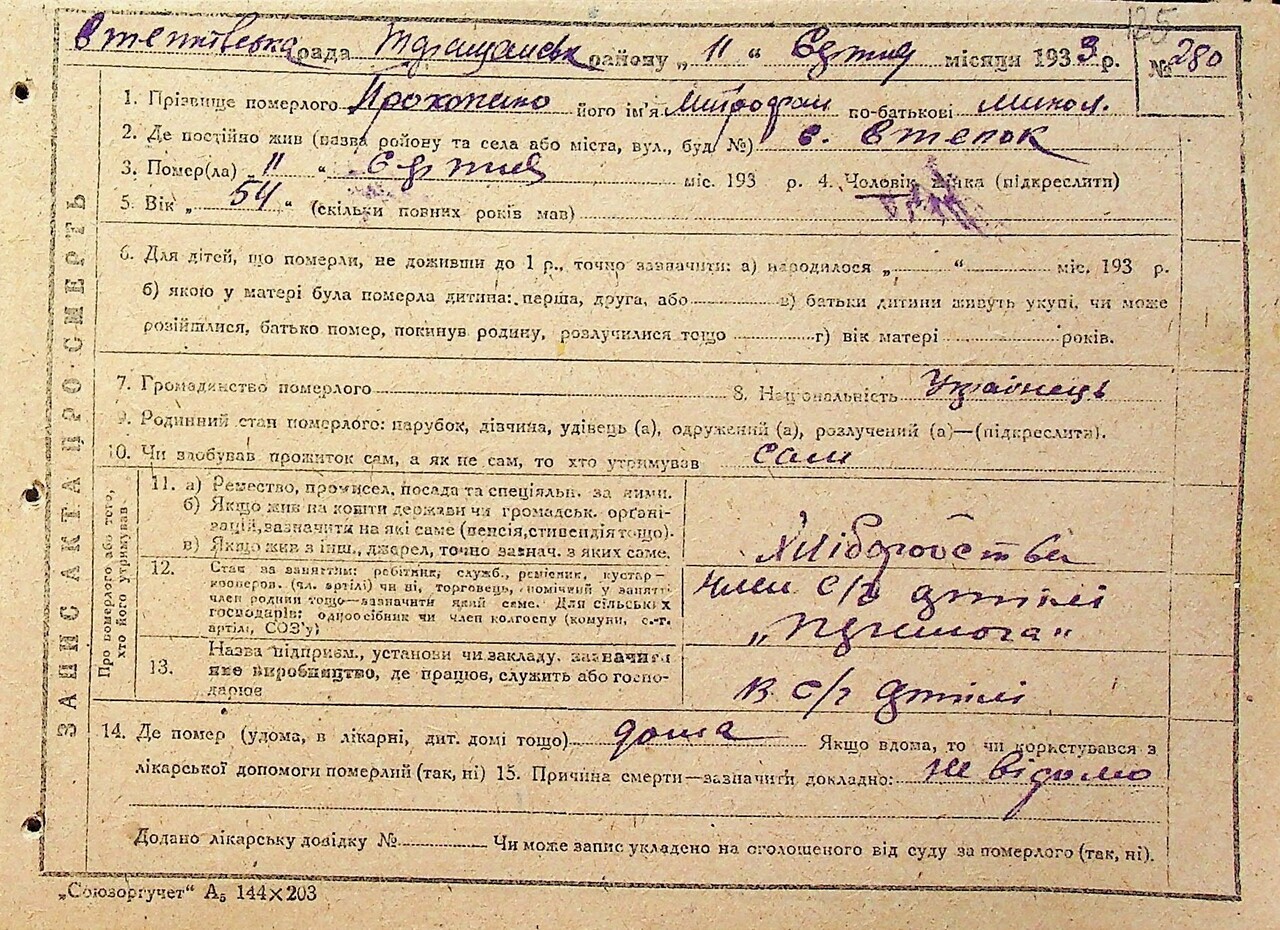 125
Втепківська рада район у „ 11 “ місяци 1933 р. № 280
1. Прізвище померлого Прокопенко його ім'я Митрофан по-батькові Микол.
2. Де постійно жив (назва району та села або міста, вул., буд. №) с. Степок
3. Помер(ла) „ 11 “ міс. 193 р. 4. Чоловік жінка (підкреслити)
5. Вік „ 54 “ (скільки повних років мав)
6. Для дітей, що померли, не доживши до 1 р., точно зазначити: а) народилося „ “ міс. 193 р.
б) якою у матері була померла дитина: перша, друга, або в) батьки дитини живуть укупі, чи може
розійшлися, батько помер, покинув родину, розлучилися тощо г) вік матері років.
7. Громадянство померлого 8. Національність Українець
9. Родинний стан померлого: парубок, дівчина, удівець (а), одружений (а), розлучений (а)—(підкреслити).
10. Чи здобував прожиток сам, а як не сам, то хто утримував сам
ЗАПИС АКТА ПРО СМЕРТЬ
Про померлого або того, хто його утримував
11. а) Ремество, промисел, посада та спеціяльн. за ними.
б) Якщо жив на кошти держави чи громадськ. орґані-
зацій, зазначити на які саме (пенсія, стипендія тощо).
в) Якщо жив з інш. джерел, точно зазнач. з яких саме.
Хліборобство
12. Стан за заняттям: робітник, служб., ремісник, кустар—
кооперов. (чл. артілі) чи ні, торговець, помічний у занятті
член родини тощо—зазначити який саме. Для сільських
господарів: одноосібник чи член колгоспу (комуни, с.-г.
артілі, СОЗ'у)
член с/г артілі
13. Назва підприєм., установи чи закладу, зазначити
яке виробництво, де працює, служить або госпо-
дарює
в с/г артілі
14. Де помер (удома, в лікарні, дит. домі тощо) дома Якщо вдома, то чи користувався з
лікарської допомоги померлий (так, ні) 15. Причина смерти—зазначити докладно: не відомо
Додано лікарську довідку № Чи може запис укладено на оголошеного від суду за померлого (так, ні).
„Союзоргучет“ А₅ 144×203